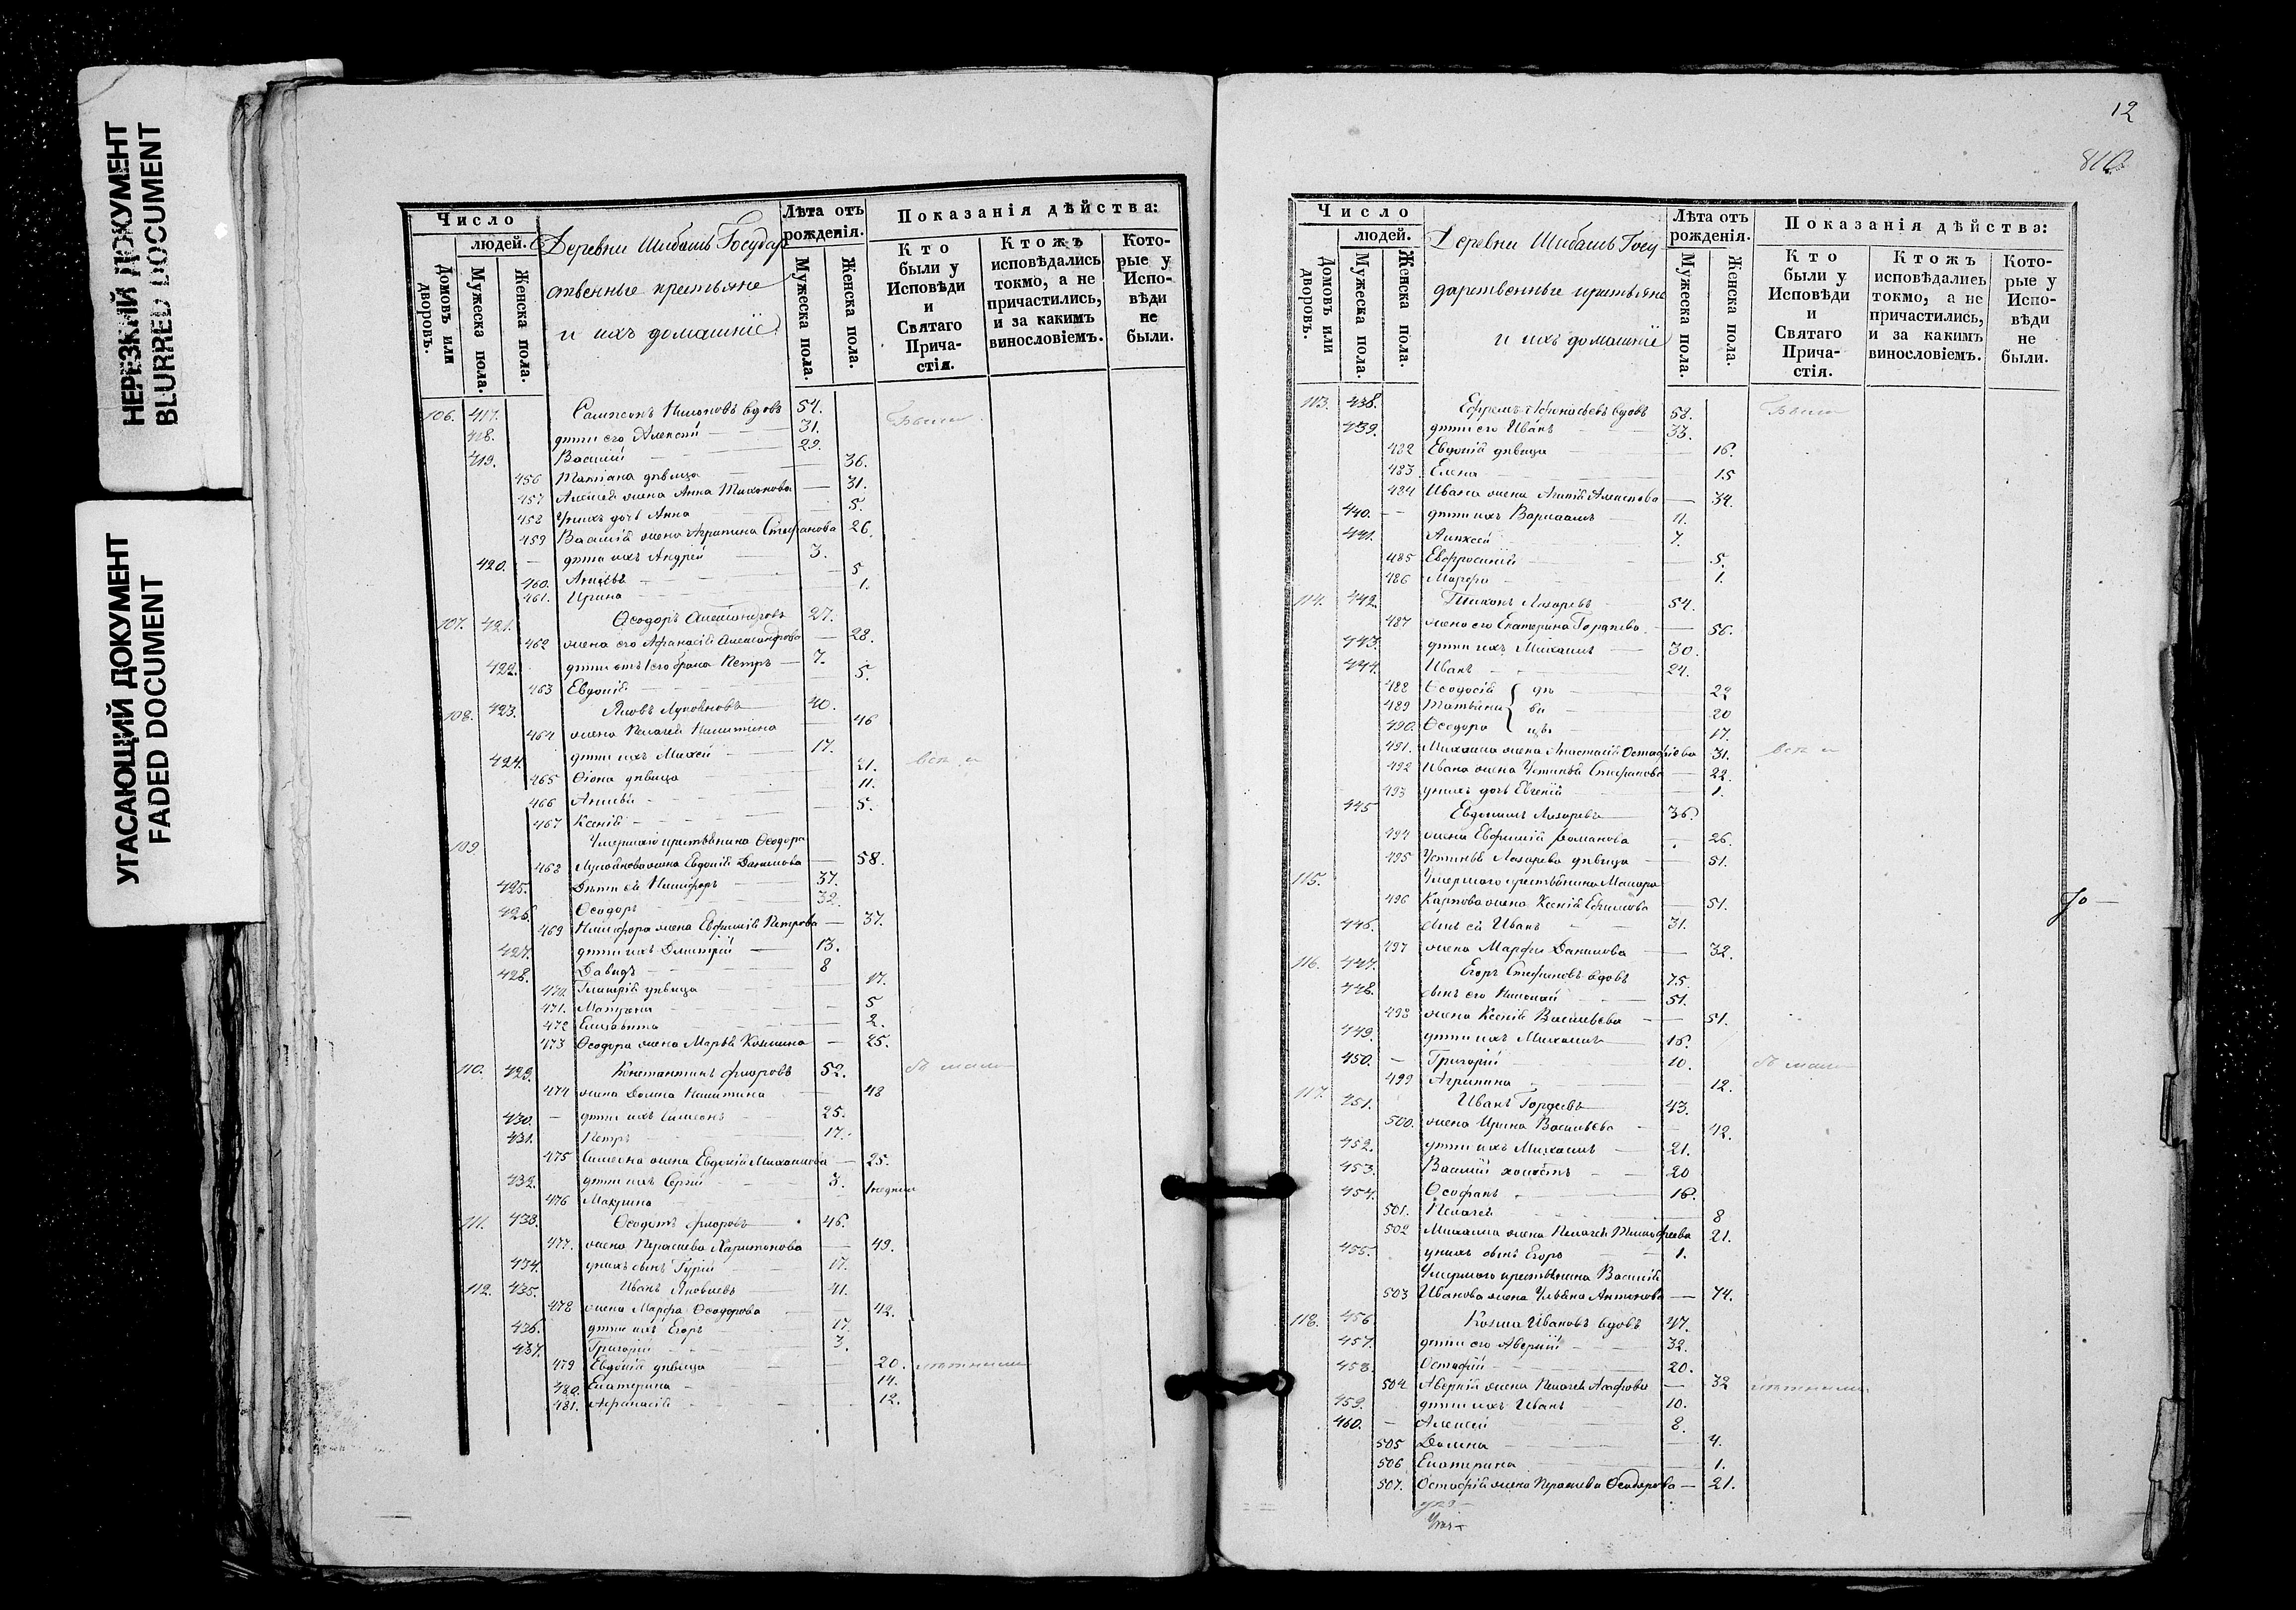 НЕРЕЗКИЙ ДОКУМЕНТ
BLURRED DOCUMENT
УГАСАЮЩИЙ ДОКУМЕНТ
FADED DOCUMENT
Число
людей.
Домовъ или дворовъ.
Мужеска пола.
Женска пола.
Деревни Шибашъ Государ
ственные крестьяне
и ихъ домашніе
Лѣта отъ рожденія.
Мужеска пола.
Женска пола.
Показанія дѣйства:
Кто были у Исповѣди и Святаго Причастія.
Ктожъ исповѣдались токмо, а не причастились, и за какимъ винословіемъ.
Которые у Исповѣди не были.
106. 417. вдовъ 54.
418. дѣти его Алексѣй 31.
419. Василій 29.
456 Татіана дѣвица 36.
457 жена Анна Тихонова 31.
458 У нихъ дочь Анна 5.
459 Василія жена Агрипина Стефанова 26.
420. дѣти ихъ Андрей 3.
460. 5
461. Ирина 1.
107. 421. Ѳеодоръ Александровъ 27.
462 жена его Афанасія Александрова 28.
422. дѣти отъ 1го брака Петръ 7.
463 Евдокія 5.
108. 423. Яковъ Лукояновъ 40.
464 жена Пелагея Никитина 46
424. дѣти ихъ 17.
465 дѣвица 21.
466 11.
467 Ксенія 5.
109 Умершаго крестьянина Ѳеодора
468 Лукоянова жена Евдокія Данилова 58.
425. Дѣти ея Никифоръ 37.
426. Ѳеодоръ 32.
469 Никифора жена Евфимія Петрова 37.
427. дѣти ихъ Дмитрій 13.
428. Давидъ 8
470. Гликерія дѣвица 17.
471. Матрена 5
472 Елизавета 2.
473 Ѳеодора жена Марья Козмина 25.
110. 429. Константинъ Флоровъ 52.
474 жена Домна Никитина 48
430. дѣти ихъ Симеонъ 25.
431. Петръ 17.
475 Симеона жена Евдокія Михайлова 25.
432. дѣти ихъ Сергій 3.
476 Макрина
111. 433. Ѳеодотъ Флоровъ 46.
477. жена Параскева Харитонова 49.
434. у нихъ сынъ Гурій 17.
112. 435. Иванъ Яковлевъ 41.
478 жена Марфа Ѳеодорова 42.
436. дѣти ихъ Егоръ 17.
437. Григорій 3.
479 Евдокія дѣвица 20.
480. Екатерина 14.
481. Афанасія 12.
12
Число
людей.
Домовъ или дворовъ.
Мужеска пола.
Женска пола.
Деревни Шибашъ Госу-
дарственные крестьяне
и ихъ домашніе
Лѣта отъ рожденія.
Мужеска пола.
Женска пола.
Показанія дѣйства:
Кто были у Исповѣди и Святаго Причастія.
Ктожъ исповѣдались токмо, а не причастились, и за какимъ винословіемъ.
Которые у Исповѣди не были.
113. 438. Ефремъ вдовъ 58.
439. дѣти его Иванъ 33.
482 Евдокія дѣвица 16.
483 Елена 15
484 Ивана жена 34.
440. дѣти ихъ Варлаамъ 11.
441. Алексѣй 7.
485 Евфросинія 5.
486 Марфа 1.
114. 442. Тихонъ Лазаревъ 54.
487 жена его Екатерина Гордѣева 56.
443. дѣти ихъ Михаилъ 30.
444. Иванъ 24.
488 Ѳеодосія дѣ 22
489 Татьяна ви 20
490. Ѳеодора цы 17.
491. Михаила жена Анастасія 31.
492 Ивана жена Устинья Стефанова 22.
493 у нихъ дочь Евгенія 1.
445 Евдокимъ Лазаревъ 36.
494 жена Евфимія Романова 26.
495 Устинья Лазарева дѣвица 51.
115. Умершаго крестьянина Макара
496 Карпова жена Ксенія Ефимова 51.
446. сынъ ея Иванъ 31.
497 жена Марфа Данилова 32.
116. 447. Егоръ Стефановъ вдовъ 75.
448. сынъ его Николай 51.
498 жена Ксенія Васильева 51.
449. дѣти ихъ Михаилъ 16.
450. Григорій 10.
499 Агрипина 12.
117. 451. Иванъ Гордѣевъ 43.
500. жена Ирина Васильева 42.
452. дѣти ихъ Михаилъ 21.
453. Василій холостъ 20
454. Ѳеофанъ 16.
501. Пелагея 8
502 Михаила жена Пелагея Тимофеева 21.
455. у нихъ сынъ Егоръ 1.
Умершаго крестьянина Василія
503 Иванова жена Ульяна Антонова 74.
118. 456. Козма Ивановъ вдовъ 47.
457. дѣти его Аверкій 32.
458. Остафій 20.
504 Аверкія жена Пелагея 32
459. дѣти ихъ Иванъ 10.
460. Алексѣй 8.
505 Домна 4.
506 Екатерина 1.
507. Остафія жена Параскева Ѳеодорова 21.